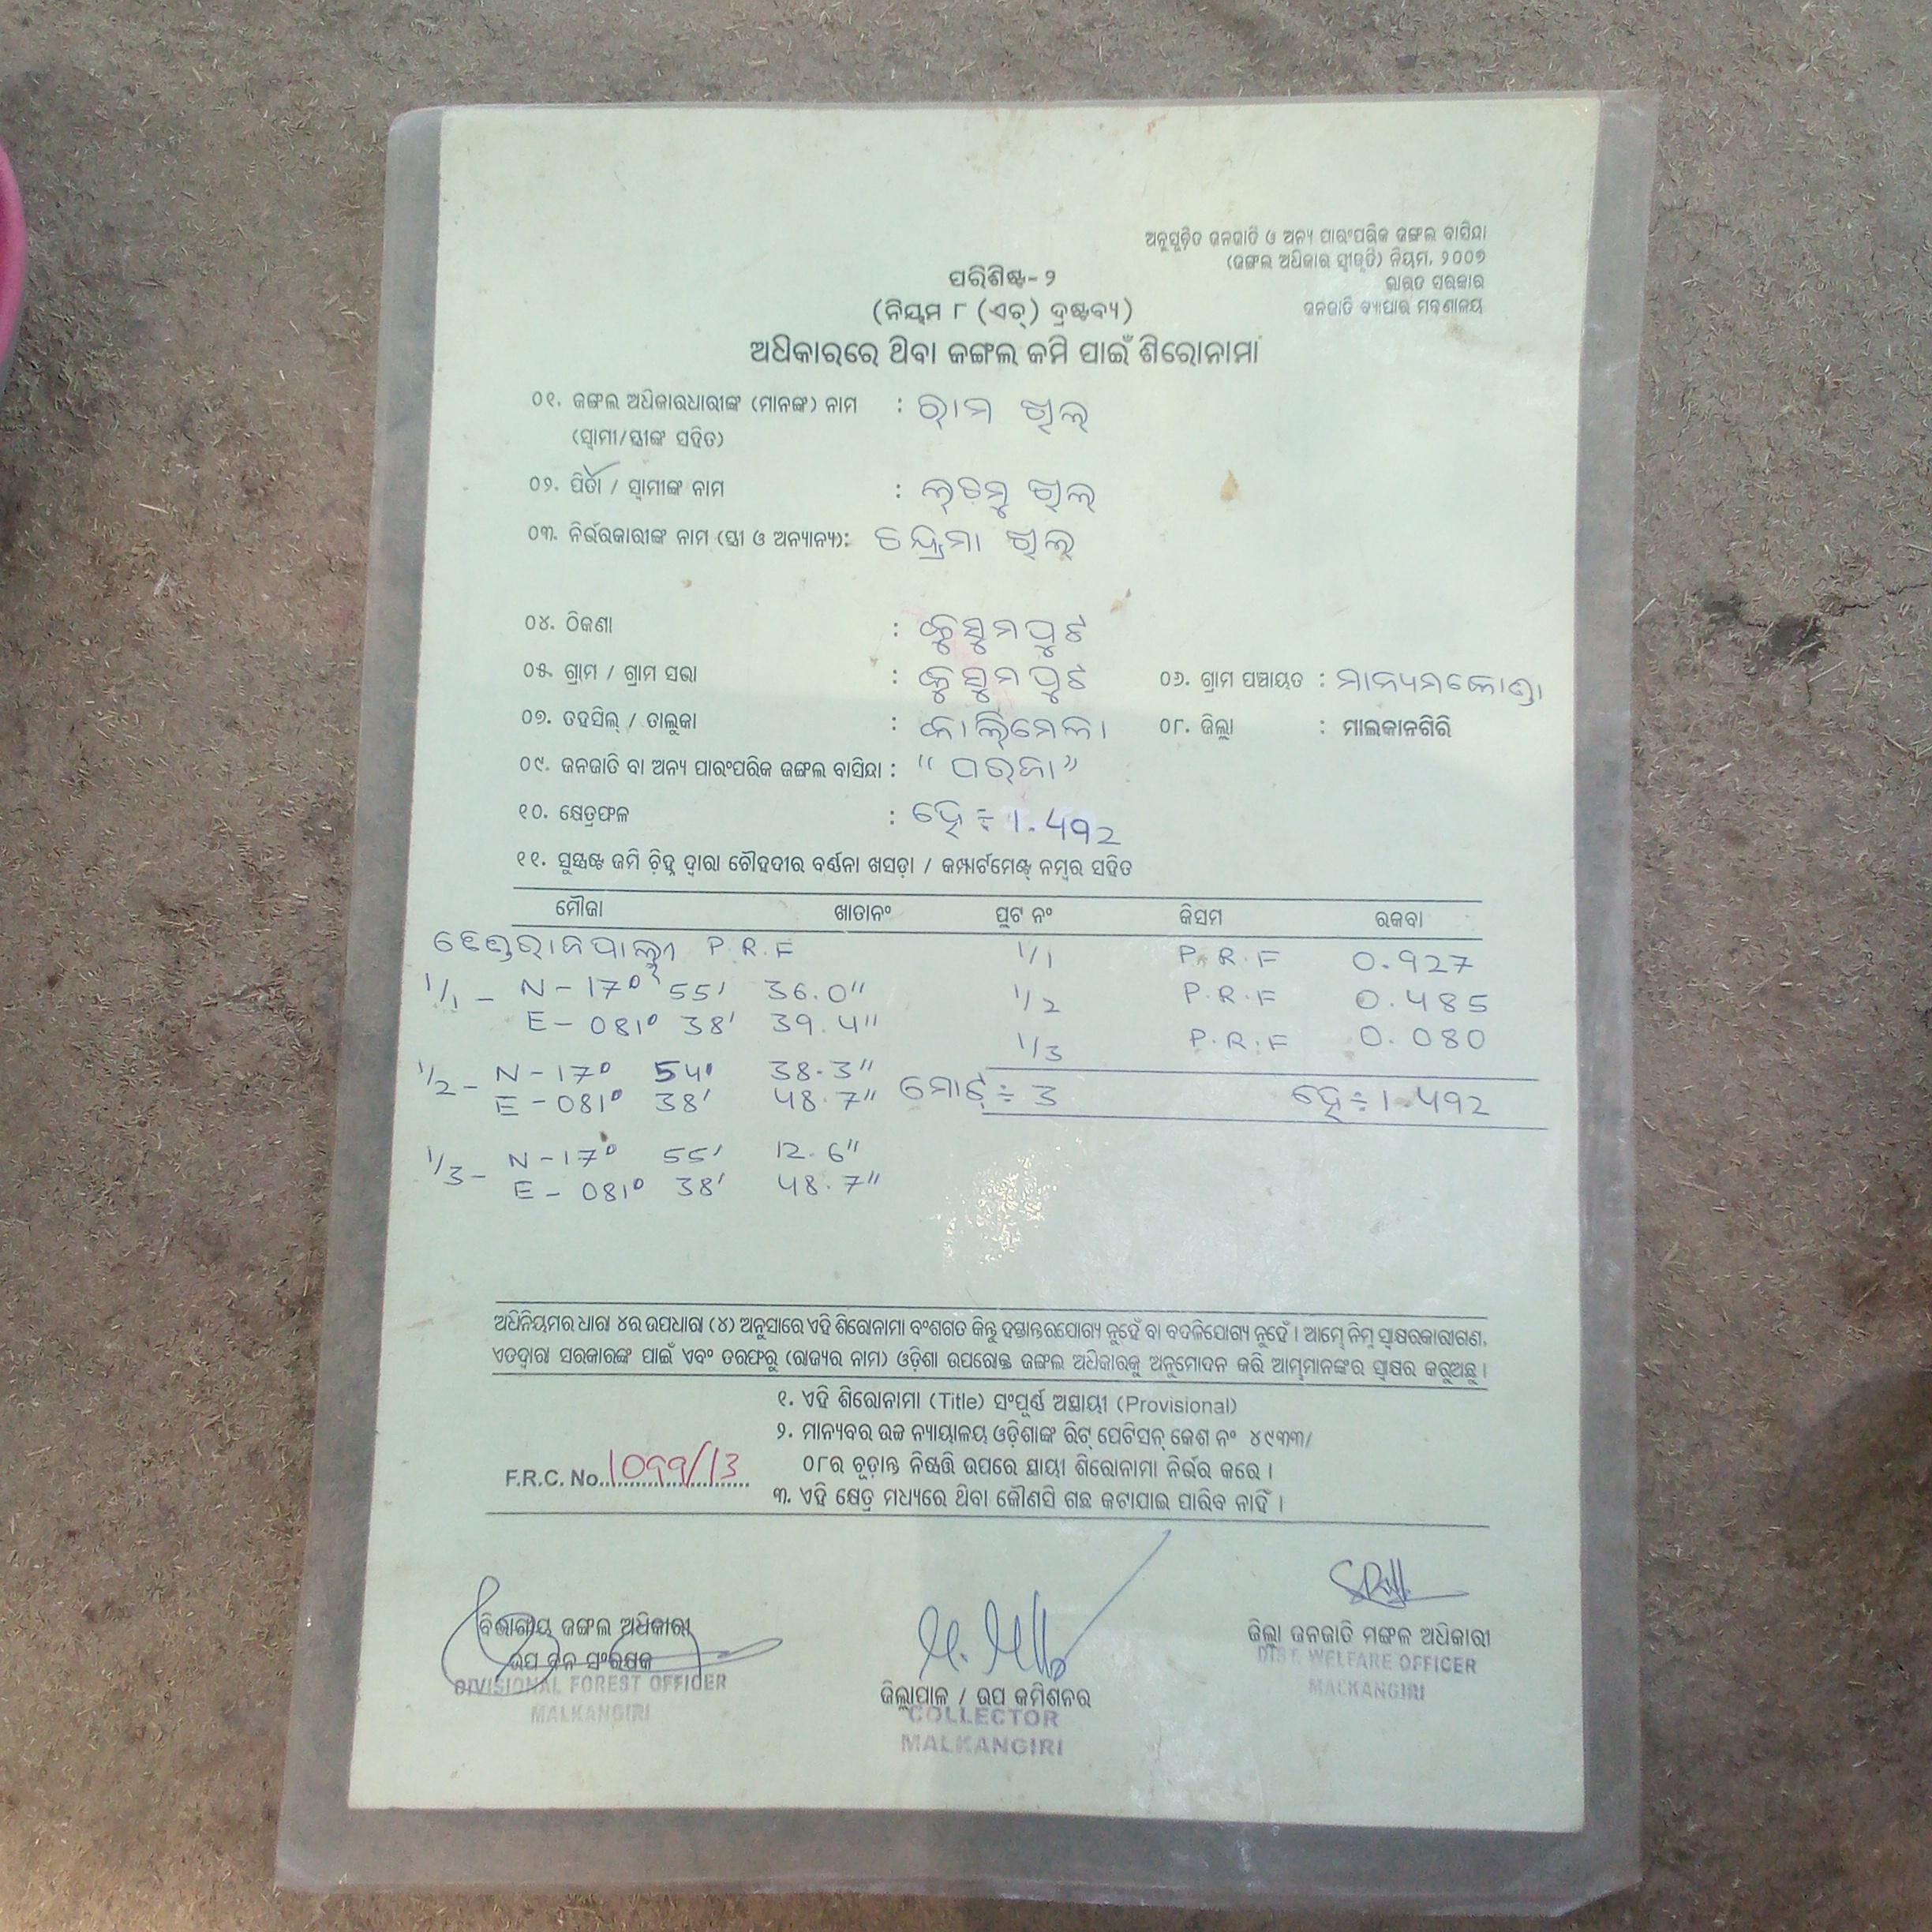 ଅନୁସୂଚିତ ଜନଜାତି ଓ ଅନ୍ୟ ପାରଂପରିକ ଜଙ୍ଗଲ ବାସିନ୍ଦା
(ଜଙ୍ଗଲ ଅଧିକାର ସ୍ୱୀକୃତି) ନିୟମ, ୨୦୦୭
ଭାରତ ସରକାର
ଜନଜାତି ବ୍ୟାପାର ମନ୍ତ୍ରଣାଳୟ
ପରିଶିଷ୍ଟ-୨
(ନିୟମ ୮ (ଏଚ୍) ଦ୍ରଷ୍ଟବ୍ୟ)
ଅଧିକାରରେ ଥିବା ଜଙ୍ଗଲ ଜମି ପାଇଁ ଶିରୋନାମା
୦୧. ଜଙ୍ଗଲ ଅଧିକାରଧାରୀଙ୍କ (ମାନଙ୍କ) ନାମ : ରାମ ଖିଲ
(ସ୍ୱାମୀ/ସ୍ତ୍ରୀଙ୍କ ସହିତ)
୦୨. ପିତା / ସ୍ୱାମୀଙ୍କ ନାମ : ଲଚମୁ ଖିଲ
୦୩. ନିର୍ଭରକାରୀଙ୍କ ନାମ (ସ୍ତ୍ରୀ ଓ ଅନ୍ୟାନ୍ୟ): ଚନ୍ଦ୍ରମା ଖିଲ
୦୪. ଠିକଣା : କୁସୁମପୁଟ
୦୫. ଗ୍ରାମ / ଗ୍ରାମ ସଭା : କୁସୁମପୁଟ ୦୬. ଗ୍ରାମ ପଞ୍ଚାୟତ : ମାନ୍ୟମକୋଣ୍ଡା
୦୭. ତହସିଲ୍ / ତାଲୁକା : କାଲିମେଳା ୦୮. ଜିଲ୍ଲା : ମାଲକାନଗିରି
୦୯. ଜନଜାତି ବା ଅନ୍ୟ ପାରଂପରିକ ଜଙ୍ଗଲ ବାସିନ୍ଦା : "ପରଜା"
୧୦. କ୍ଷେତ୍ରଫଳ : ହେ ÷ 1.492
୧୧. ସୁସ୍ପଷ୍ଟ ଜମି ଚିହ୍ନ ଦ୍ୱାରା ଚୌହଦୀର ବର୍ଣ୍ଣନା ଖସଡ଼ା / କମ୍ପାର୍ଟମେଣ୍ଟ୍ ନମ୍ବର ସହିତ
ମୌଜା ଖାତାନଂ ପ୍ଲଟ ନଂ କିସମ ରକବା
P.R.F 1/1 P.R.F 0.927
1/1 - N - 17° 55' 36.0" 1/2 P.R.F 0.485
E - 081° 38' 39.4" 1/3 P.R.F 0.080
1/2 - N - 17° 54' 38.3"
E - 081° 38' 48.7" ମୋଟ୍ ÷ 3 ହେ ÷ 1.492
1/3 - N - 17° 55' 12.6"
E - 081° 38' 48.7"
ଅଧିନିୟମର ଧାରା ୪ର ଉପଧାରା (୪) ଅନୁସାରେ ଏହି ଶିରୋନାମା ବଂଶଗତ କିନ୍ତୁ ହସ୍ତାନ୍ତରଯୋଗ୍ୟ ନୁହେଁ ବା ବଦଳିଯୋଗ୍ୟ ନୁହେଁ । ଆମ୍ଭେ ନିମ୍ନ ସ୍ୱାକ୍ଷରକାରୀଗଣ,
ଏତଦ୍ୱାରା ସରକାରଙ୍କ ପାଇଁ ଏବଂ ତରଫରୁ (ରାଜ୍ୟର ନାମ) ଓଡ଼ିଶା ଉପରୋକ୍ତ ଜଙ୍ଗଲ ଅଧିକାରକୁ ଅନୁମୋଦନ କରି ଆମ୍ଭମାନଙ୍କର ସ୍ୱାକ୍ଷର କରୁଅଛୁ ।
୧. ଏହି ଶିରୋନାମା (Title) ସଂପୂର୍ଣ୍ଣ ଅସ୍ଥାୟୀ (Provisional)
୨. ମାନ୍ୟବର ଉଚ୍ଚ ନ୍ୟାୟାଳୟ ଓଡ଼ିଶାଙ୍କ ରିଟ୍ ପେଟିସନ୍ କେଶ ନଂ ୪୯୩୩/
୦୮ର ଚୂଡ଼ାନ୍ତ ନିଷ୍ପତ୍ତି ଉପରେ ସ୍ଥାୟୀ ଶିରୋନାମା ନିର୍ଭର କରେ ।
F.R.C. No. 1099/13
୩. ଏହି କ୍ଷେତ୍ର ମଧ୍ୟରେ ଥିବା କୌଣସି ଗଛ କଟାଯାଇ ପାରିବ ନାହିଁ ।
ବିଭାଗୀୟ ଜଙ୍ଗଲ ଅଧିକାରୀ
ଉପ ବନ ସଂରକ୍ଷକ
DIVISIONAL FOREST OFFICER
MALKANGIRI
ଜିଲ୍ଲାପାଳ / ଉପ କମିଶନର
COLLECTOR
MALKANGIRI
ଜିଲ୍ଲା ଜନଜାତି ମଙ୍ଗଳ ଅଧିକାରୀ
DIST. WELFARE OFFICER
MALKANGIRI